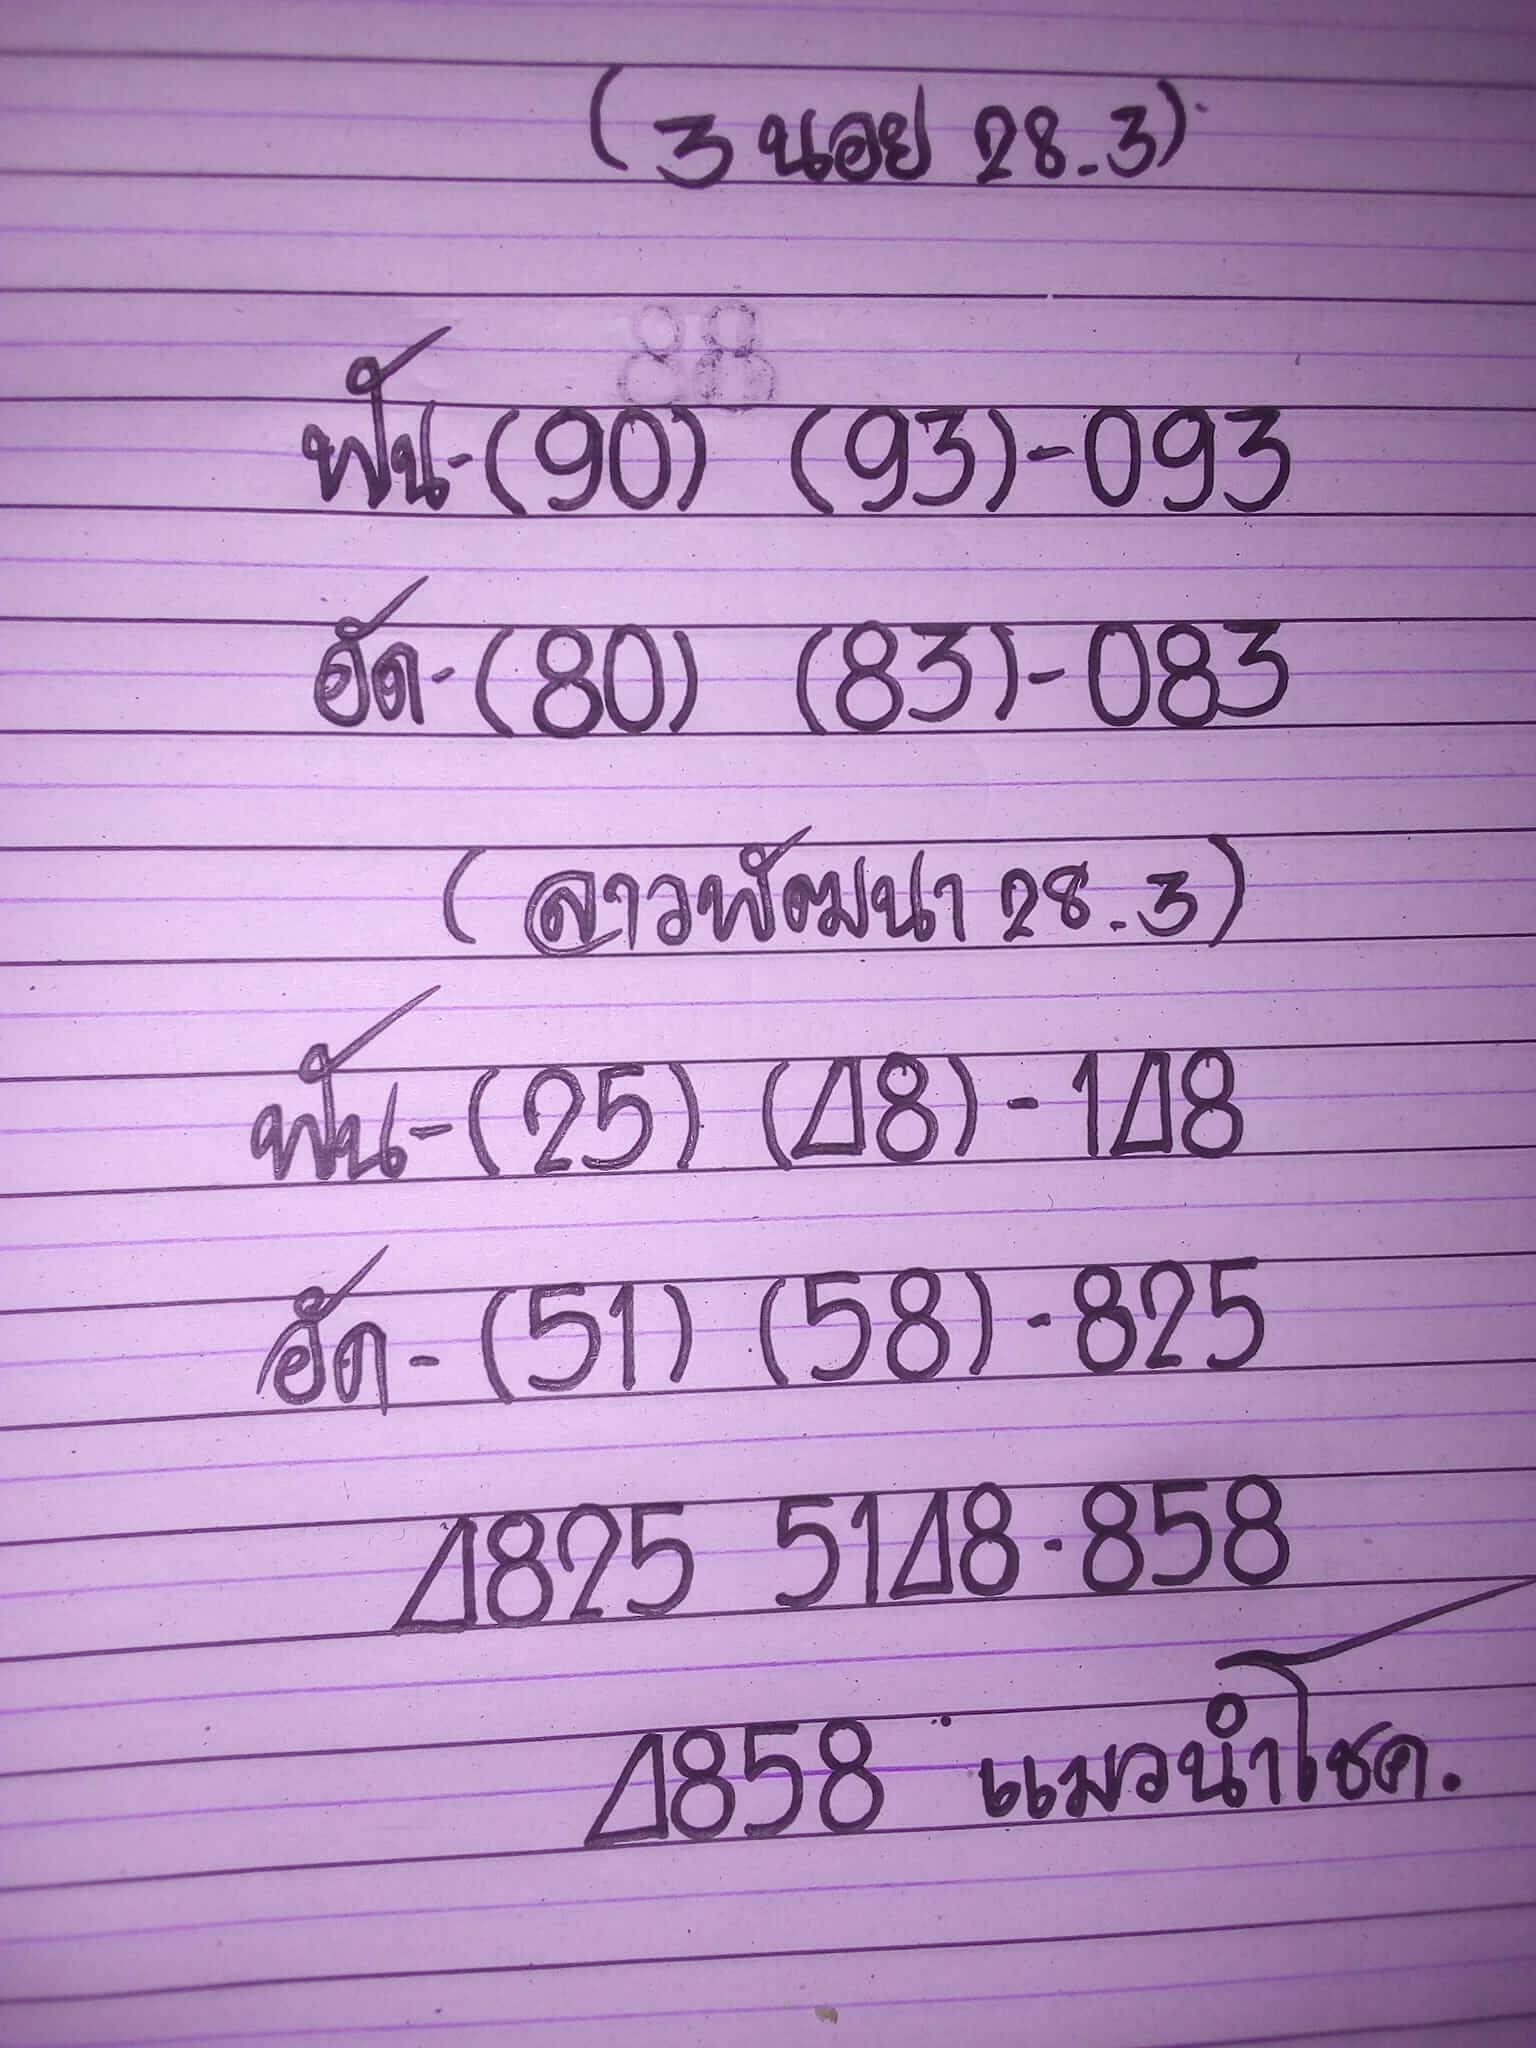 (3 นอย 28.3)
88
ฟัน-(90) (93)-093
อัด-(80) (83)-083
(ลาวพัฒนา 28.3)
ฟัน-(25) (48)-148
อัด-(51) (58)-825
4825 5148-858
4858 แมวนำโชค.